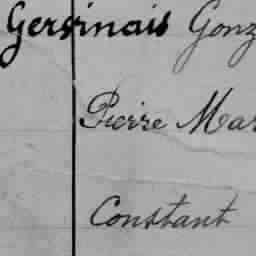 Gervinais Gonz
Pierre Mar
Constant